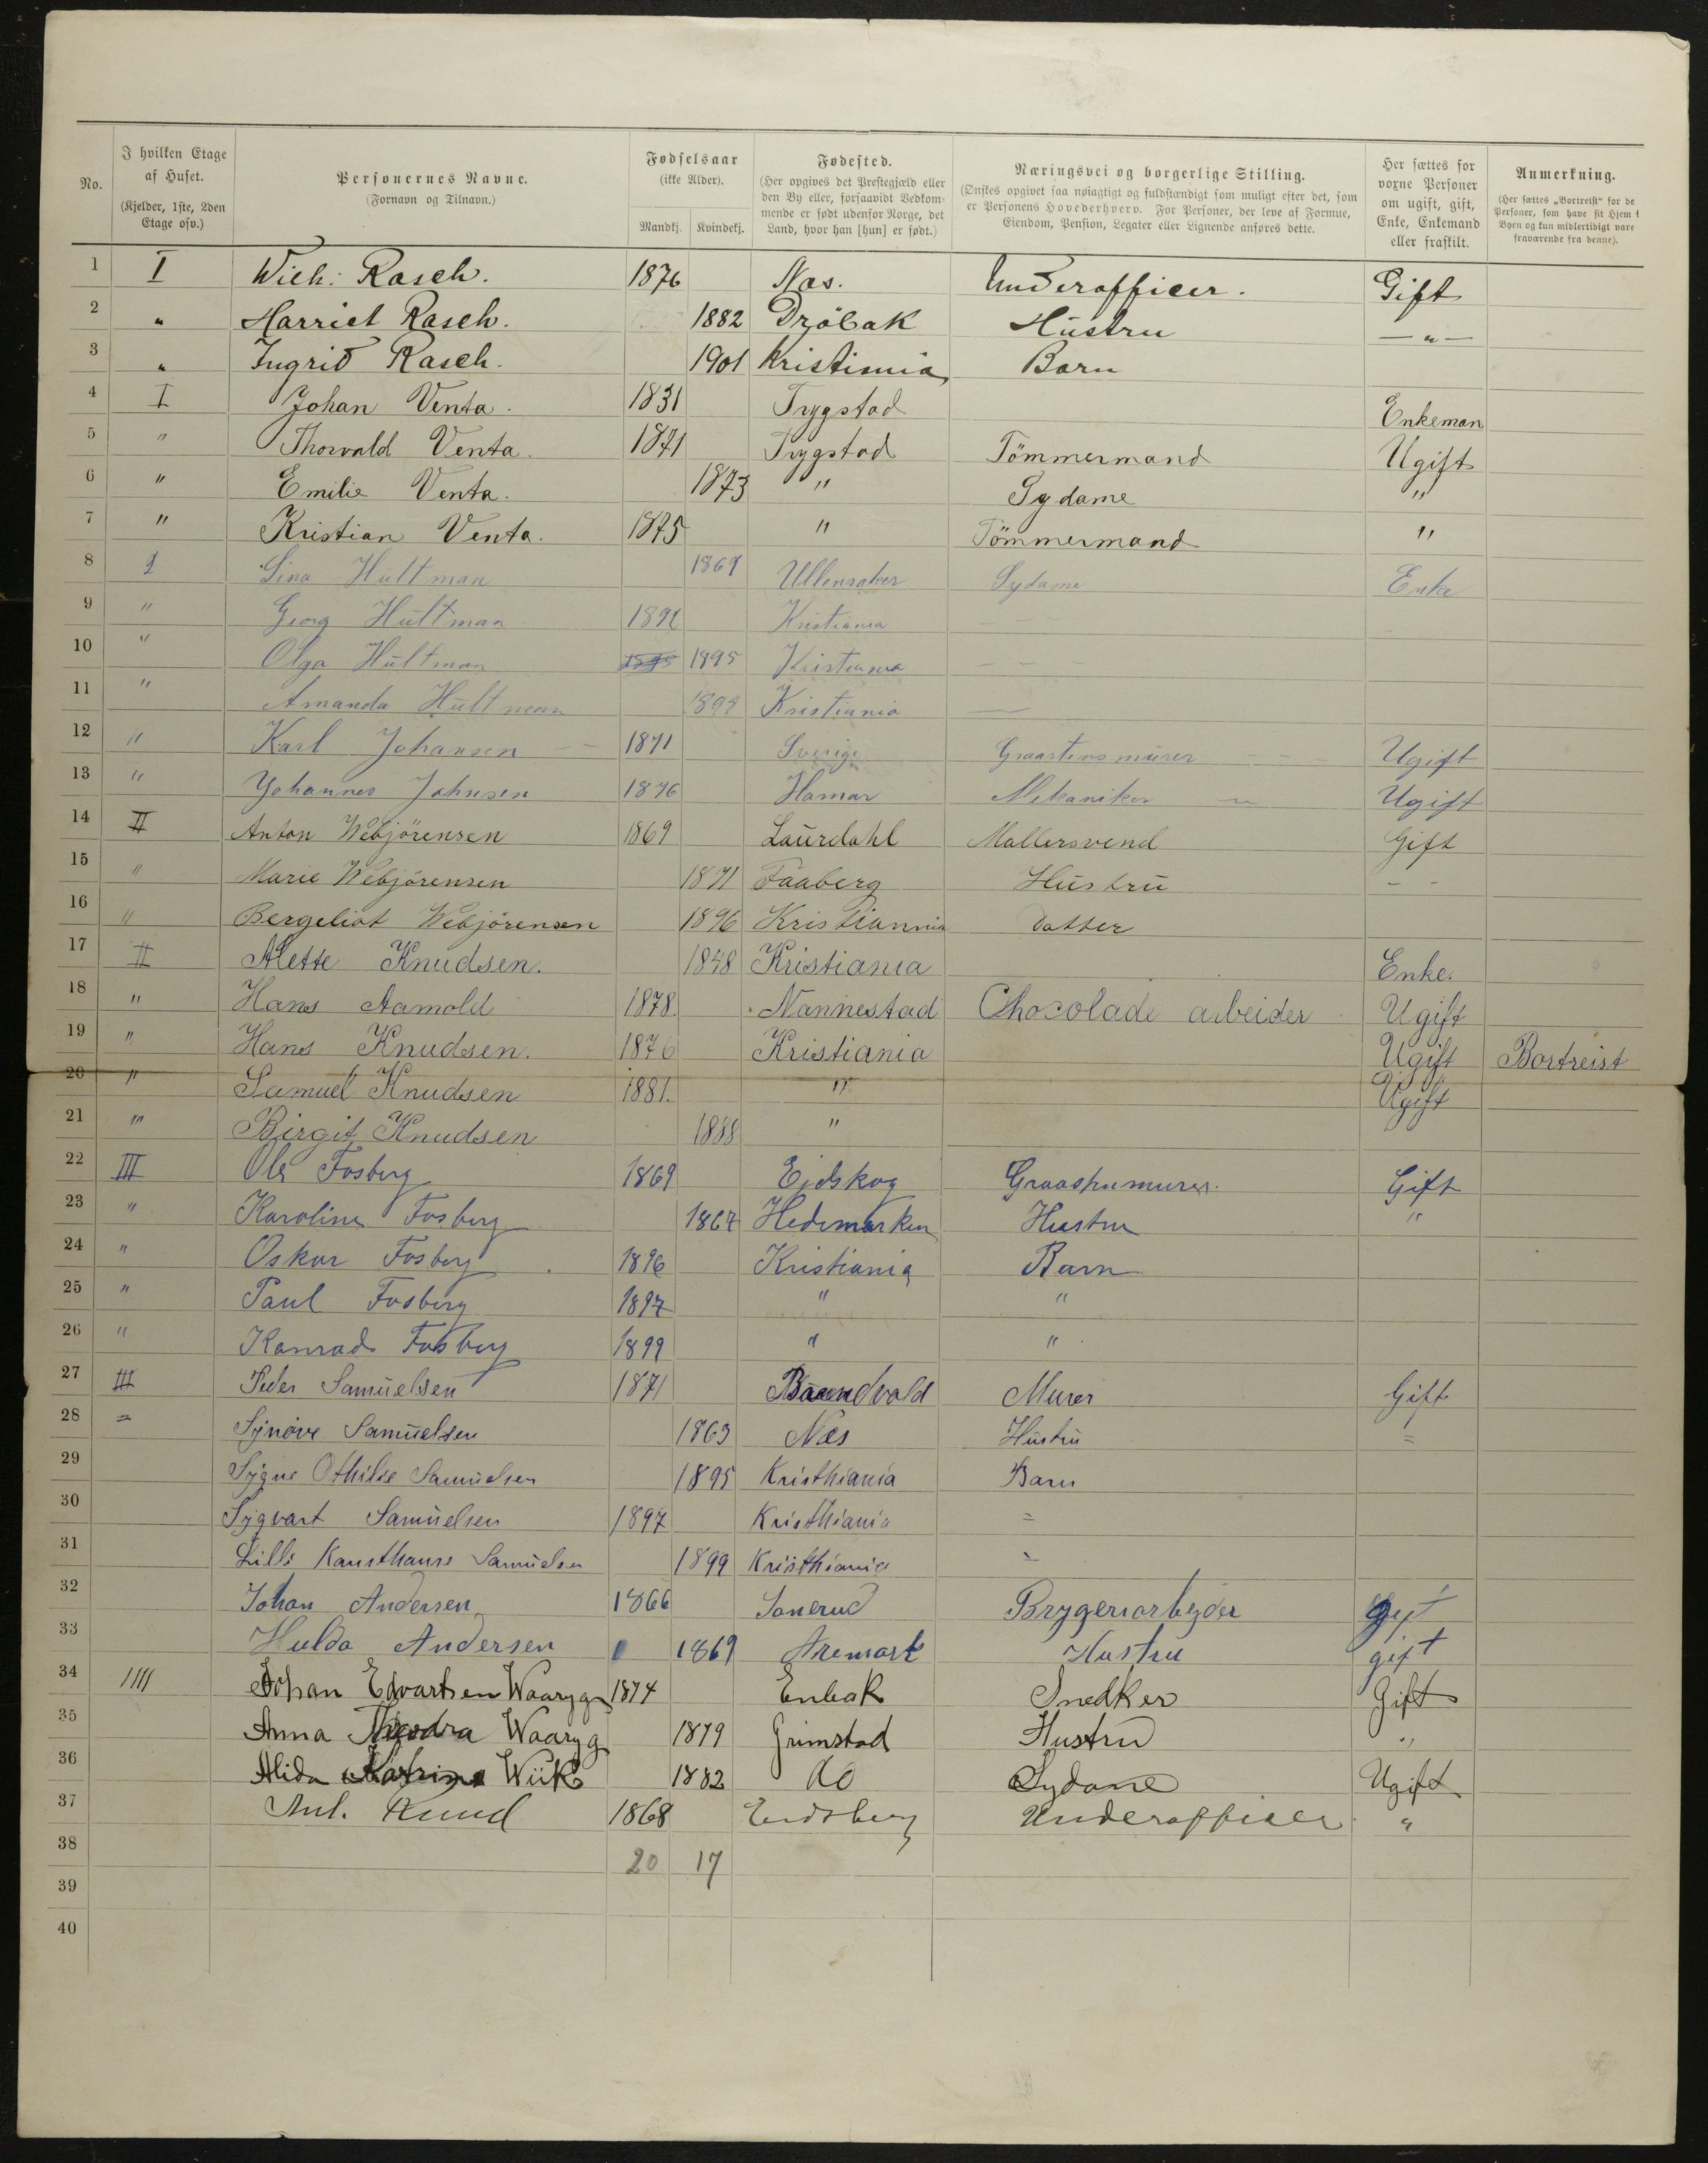 No.
I hvilken Etage af Huset. (Kjelder, 1ste, 2den Etage osv.)
Personernes Navne. (Fornavn og Tilnavn.)
Fødselsaar (ikke Alder). Mandkj. Kvindekj.
Fødested. (Her opgives det Prestegjæld eller den By eller, forsaavidt Vedkommende er født udenfor Norge, det Land, hvor han [hun] er født.)
Næringsvei og borgerlige Stilling. (Ønskes opgivet saa nøiagtigt og fuldstændigt som muligt efter det, som er Personens Hovederhverv. For Personer, der leve af Formue, Eiendom, Pension, Legater eller Lignende anføres dette.
Her sættes for voxne Personer om ugift, gift, Enke, Enkemand eller fraskilt.
Anmerkning. (Her sættes „Bortreist“ for de Personer, som have sit Hjem i Byen og kun midlertidigt vare fraværende fra denne).
1 I Wich: Rasch. 1876 Nas. Underofficer. Gift
2 " Harriet Rasch. 1882 Dröbak Hustru — " —
3 " Ingrid Rasch. 1901 Kristiania Barn
4 I Johan Venta. 1831 Trygstad Enkeman
5 " Thorvald Venta. 1871 Trygstad Tömmermand Ugift
6 " Emilie Venta. 1873 " Sydame "
7 " Kristian Venta. 1875 " Tömmermand "
8 1 Lina Hultman 1869 Ullensaker Sydame Enke
9 " Georg Hultman 1892 Kristiania
10 " Olga Hultman 1895 1895 Kristiania — —
11 " Amanda Hultman 1899 Kristiania —
12 " Karl Johansen 1871 Sverige Graastensmurer Ugift
13 " Yohannes Johnsen 1876 Hamar Mekaniker Ugift
14 II Anton Webjörensen 1869 Laurdahl Mallersvend Gift
15 " Marie Webjörensen 1871 Faaberg Hustru - -
16 " Bergeliot Webjörensen 1896 Kristiannia Datter
17 II Alette Knudsen. 1848 Kristiania Enke.
18 " Hans Aamold 1878. Nannestad Chocolade arbeider Ugift
19 " Hans Knudsen. 1876 Kristiania Ugift Bortreist
20 " Samuel Knudsen 1881. " Ugift
21 " Birgit Knudsen 1888 "
22 III Ole Fosberg 1869 Eidskog Gift
23 " Karoline Fosberg 1867 Hedemarken Hustru "
24 " Oskar Fosberg 1896 Kristiania Barn
25 " Paul Fosberg 1897 " "
26 " Konrad Fosberg 1899 " "
27 III Peder Samuelsen 1871 Murer Gift
28 = Synöve Samuelsen 1863 Næs Hustru =
29 Sygne Othilie Samuelsen 1895 Kristhiania Barn
30 Sygvart Samuelsen 1897 Kristhiania =
31 Lilli Samuelsen 1899 Kristhiania =
32 Johan Andersen 1866 Sanerud Brygeriarbejder gift
33 Hulda Andersen 1869 Aremark Hustru gift
34 IIII Johan Edvartsen Waaryg 1874 Enbak Snedker Gift
35 Anna Waaryg 1879 Grimstad Hustru "
36 Alida Katrine Wiik 1882 do Sydame Ugift
37 Ant. Ruud 1868 Eidsberg Underofficer "
38 20 17
39
40